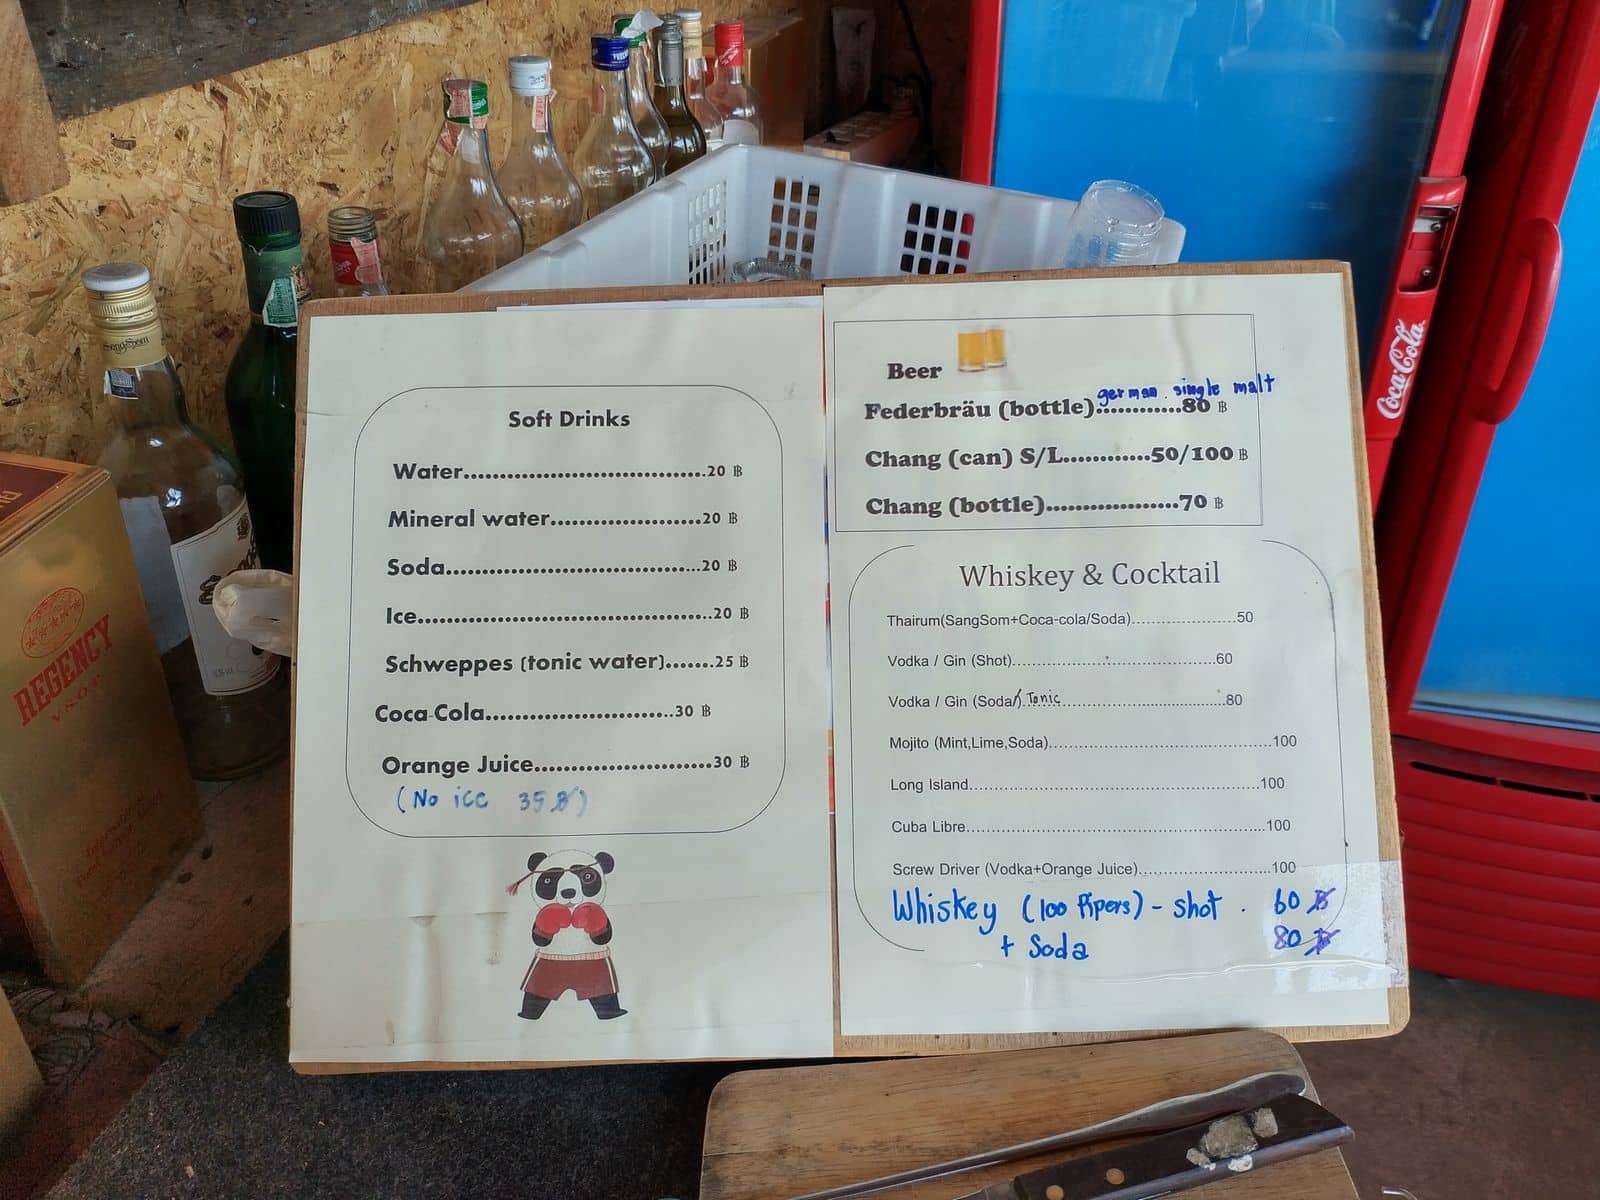 Soft Drinks
Water..................................20 ฿
Mineral water.....................20 ฿
Soda....................................20 ฿
Ice.........................................20 ฿
Schweppes (tonic water).......25 ฿
Coca-Cola..........................30 ฿
Orange Juice........................30 ฿
(No ice 35 ฿)
Beer
german single malt
Federbräu (bottle)............80 ฿
Chang (can) S/L............50/100 ฿
Chang (bottle)...................70 ฿
Whiskey & Cocktail
Thairum(SangSom+Coca-cola/Soda).......................50
Vodka / Gin (Shot)............................................60
Vodka / Gin (Soda/) Tonic....................................80
Mojito (Mint,Lime,Soda)................................................100
Long Island...............................................................100
Cuba Libre................................................................100
Screw Driver (Vodka+Orange Juice)............................100
Whiskey (100 Pipers) - shot . 60 ฿
+ Soda 80 ฿
Coca-Cola
REGENCY
V.S.O.P
SangSom